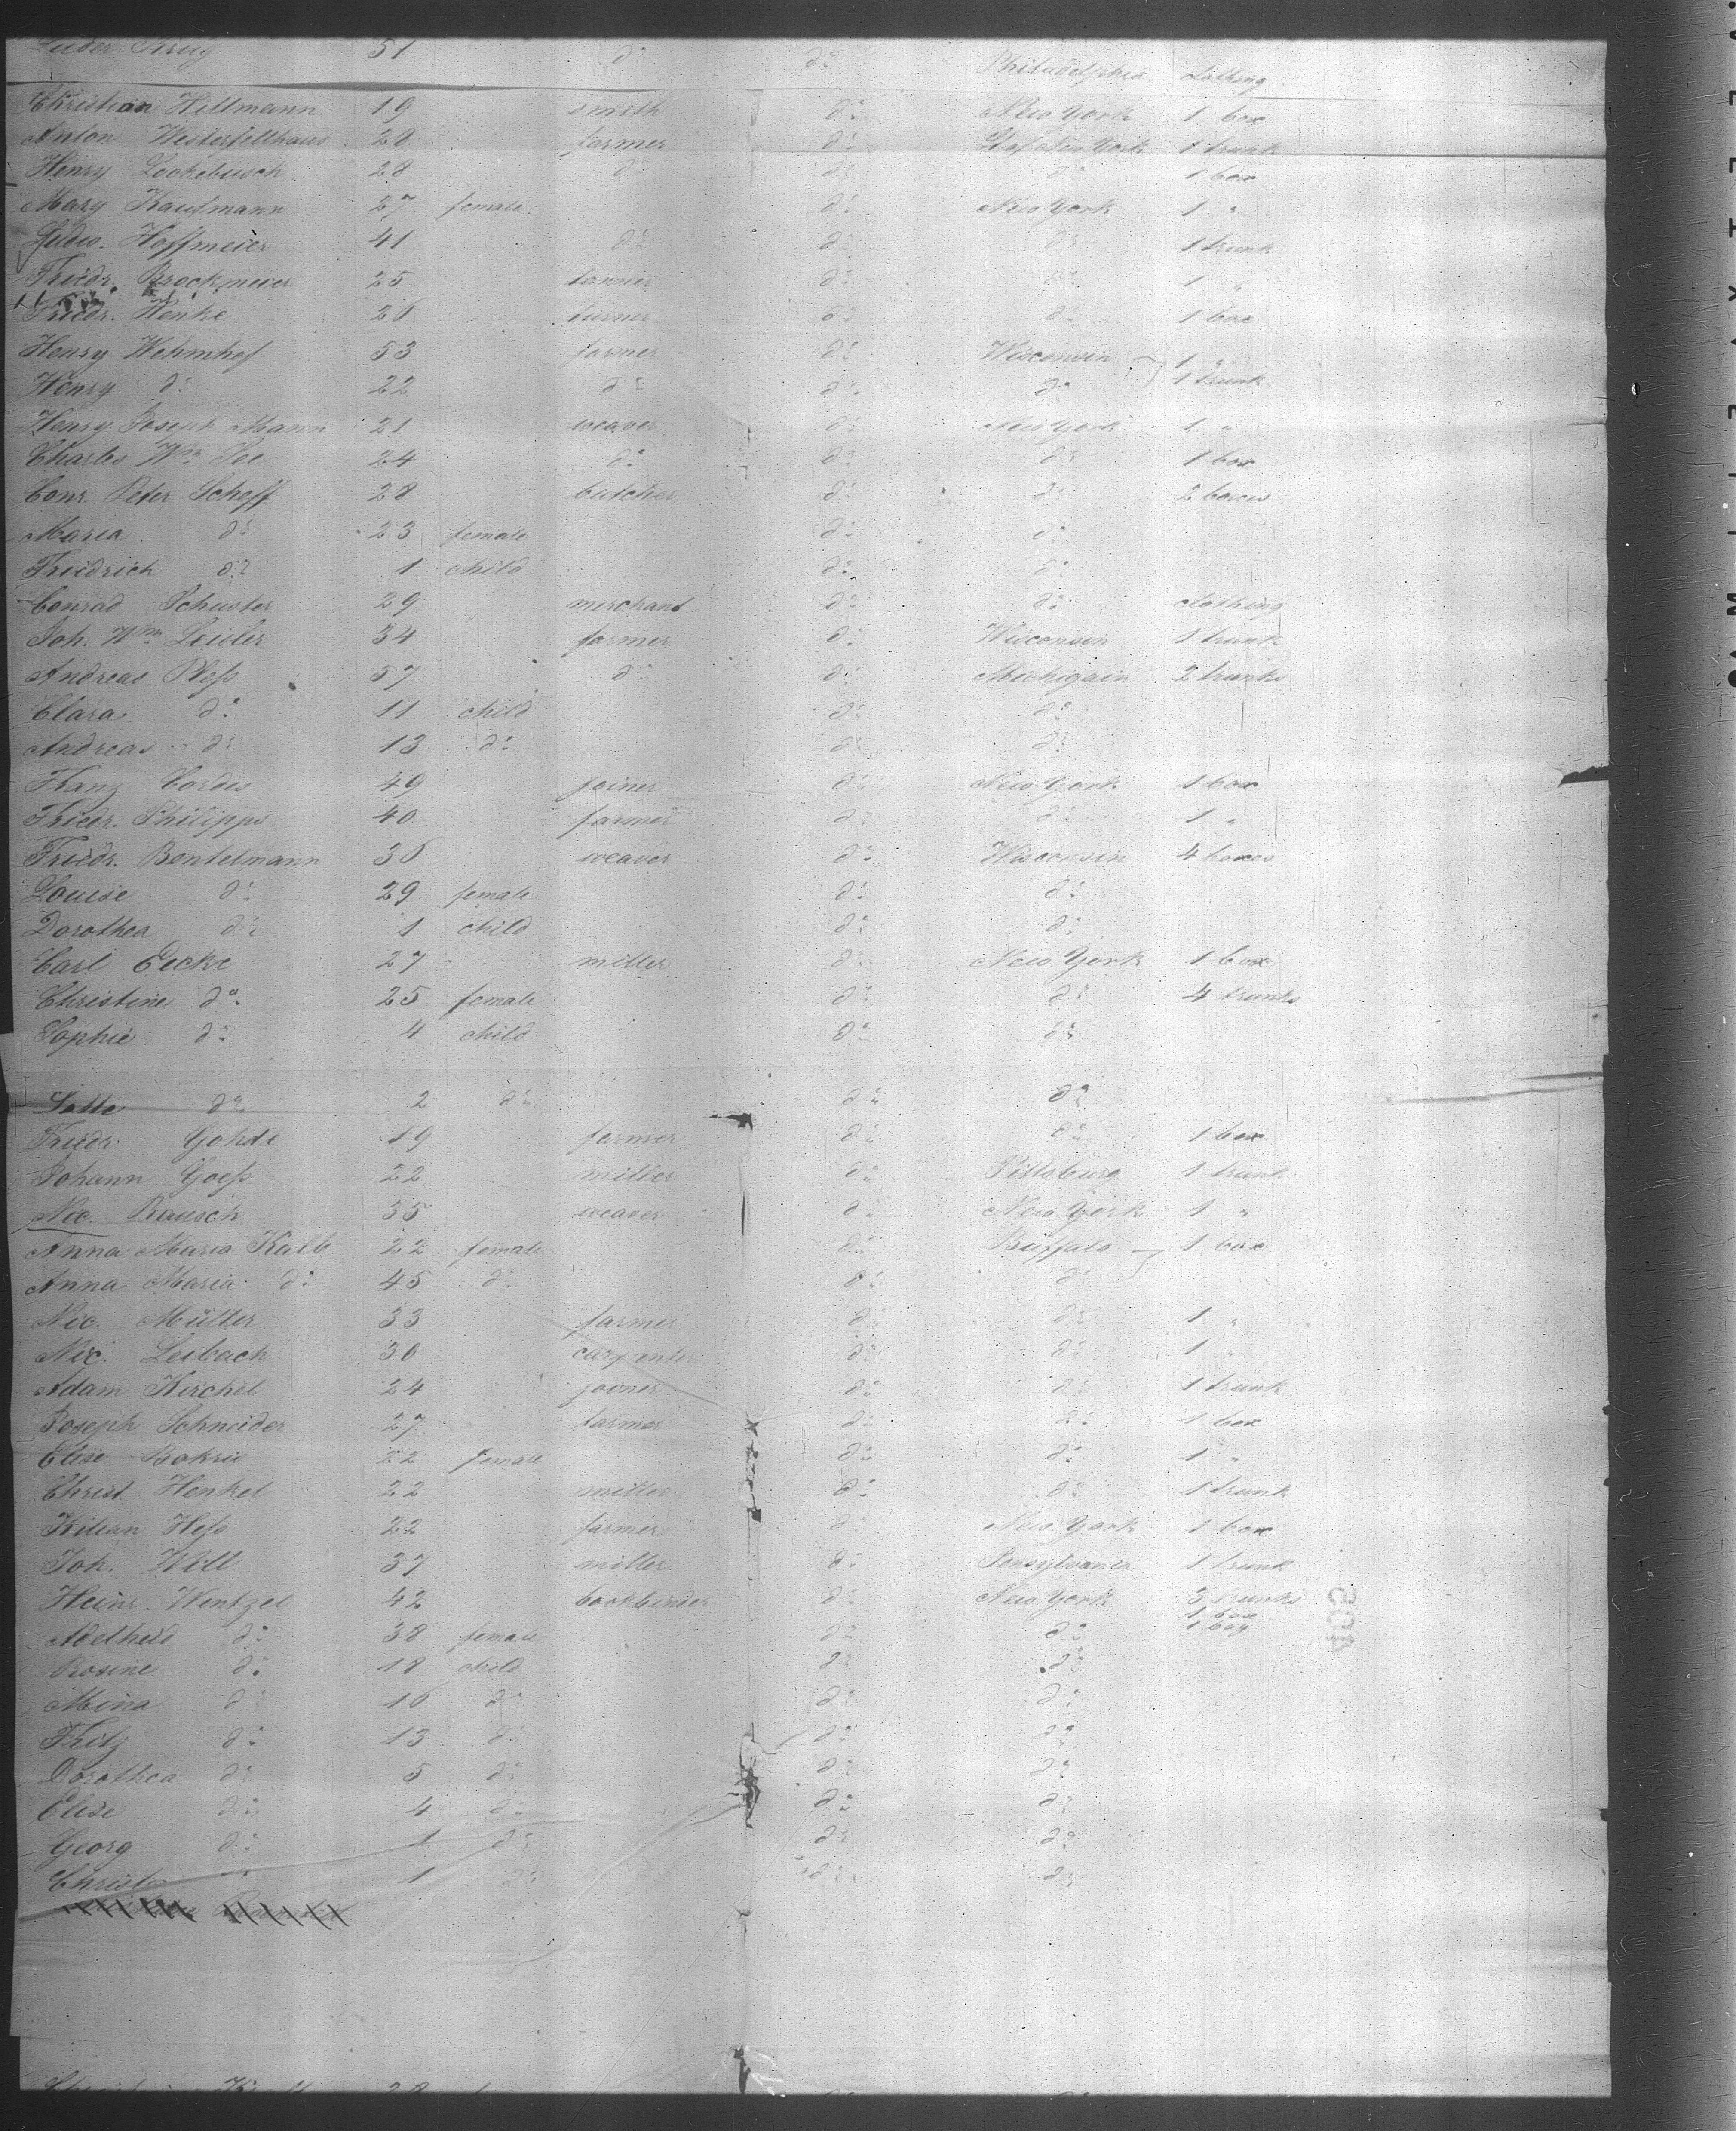 Lüder Krug 51 do do Philadelphia clothing
Christian Hillmann 19 smith do New York 1 box
Anton Westerfellhaus 28 farmer do St of New York 1 trunk
Henry Lockebusch 28 do do do 1 box
Mary Kaufmann 27 female do New York 1 "
Ludw. Hoffmeier 41 do do do 1 trunk
Friedr. Brockmeier 25 do do 1 "
Friedr. Henke 26 turner do do 1 box
Henry Wehmhof 53 farmer do Wisconsin 1 "
Henry do 22 do do do 1 trunk
Henry Joseph Mann 21 weaver do New York 1 "
Charles Wm 24 do do do 1 box
Conr. Peter Schoff 28 butcher do do 2 boxes
Maria do 23 female do do
Friedrich do 1 child do do
Conrad Schuster 29 merchant do do clothing
Joh. Wm Leisler 34 farmer do Wisconsin 1 trunk
Andreas Pleß 57 do do Michigain 2 trunks
Clara do 11 child do do
Andreas do 13 do do do
Franz Cordes 49 joiner do New York 1 box
Friedr. Philipps 40 farmer do do 1 "
Friedr. Bentelmann 36 weaver do Wisconsin 4 boxes
Louise do 29 female do do
Dorothea do 1 child do do
Carl Gecke 27 miller do New York 1 box
Christine do 25 female do do 4 trunks
Sophie do 4 child do do
do 2 do do do
Friedr. Gohde 19 farmer do do 1 box
Johann Goeß 22 miller do Pittsburg 1 trunk
Nic. Rausch 35 weaver do New York 1 "
Anna Maria Kalb 22 female do Buffalo 1 box
Anna Maria do 45 do do do
Nic. Müller 33 farmer do do 1 "
Nic. Leibach 30 carpenter do do 1 "
Adam Kirchel 24 joiner do do 1 trunk
Joseph Schneider 27 farmer do do 1 box
Elise 22 female do do 1 "
Christ. Henkel 22 miller do do 1 trunk
Kilian Heß 22 farmer do New York 1 box
Joh. Will 37 miller do Pensylvania 1 trunk
Heinr. Wentzel 42 bookbinder do New York 3 trunks
1 box
Adelheid do 38 female do do 1 bag
Rosine do 18 child do do
Mina do 16 do do do
Fritz do 13 do do do
Dorothea do 5 do do do
Elise do 4 do do do
Georg do 1 do do do
Christ. do 1 do do do
405
28